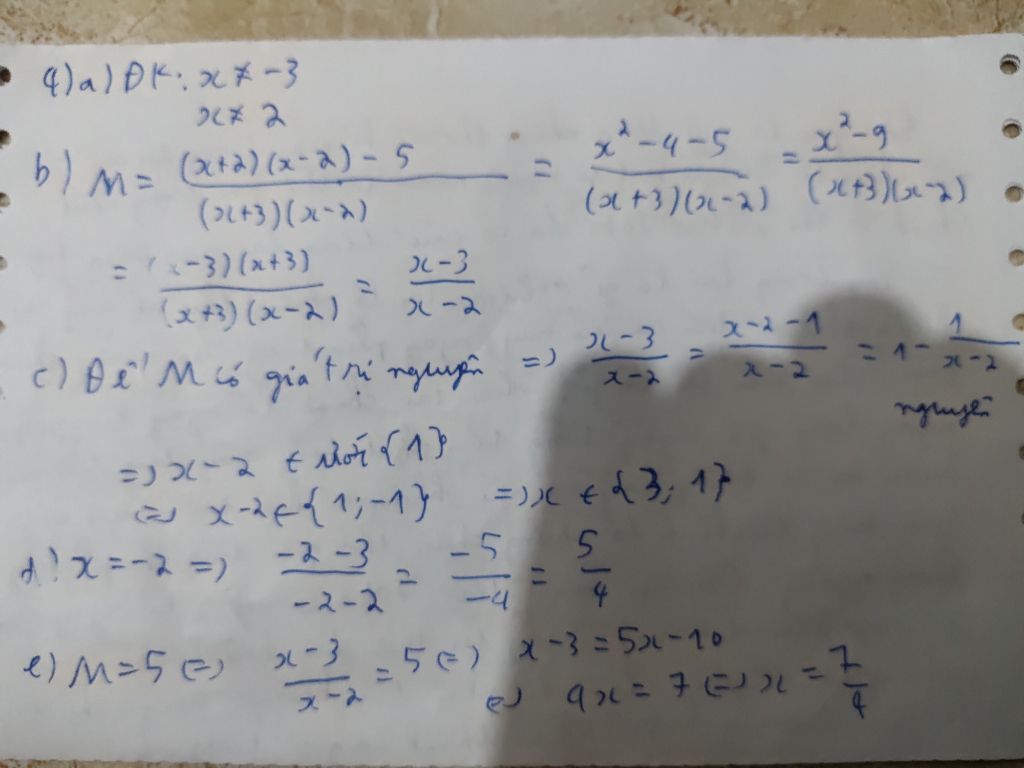 4) a) ĐK: x ≠ -3
x ≠ 2
b) M = \frac{(x+2)(x-2) - 5}{(x+3)(x-2)} = \frac{x^2 - 4 - 5}{(x+3)(x-2)} = \frac{x^2 - 9}{(x+3)(x-2)}
= \frac{(x-3)(x+3)}{(x+3)(x-2)} = \frac{x-3}{x-2}
c) Để M có giá trị nguyên => \frac{x-3}{x-2} = \frac{x-2-1}{x-2} = 1 - \frac{1}{x-2}
nguyên
=> x-2 ∈ Ước {1}
<=> x-2 ∈ {1; -1} => x ∈ {3; 1}
d) x = -2 => \frac{-2-3}{-2-2} = \frac{-5}{-4} = \frac{5}{4}
e) M = 5 <=> \frac{x-3}{x-2} = 5 <=> x-3 = 5x-10
<=> 4x = 7 <=> x = \frac{7}{4}